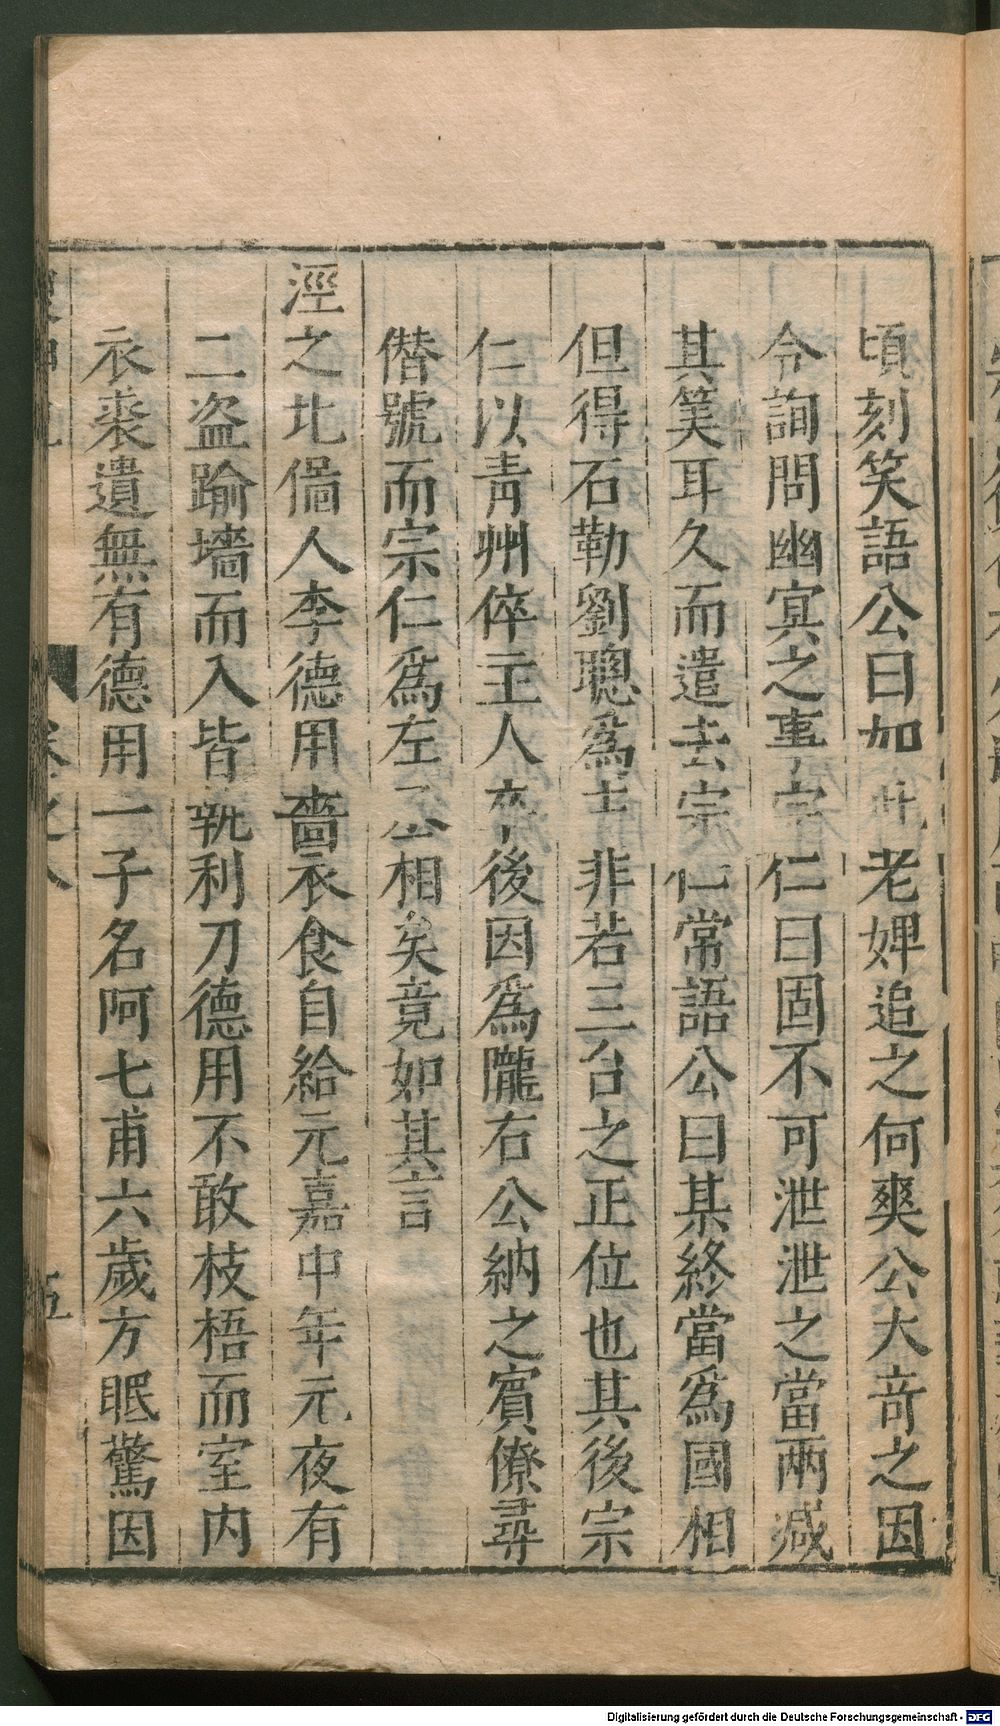 頃刻笑語公曰如此老婢追之何爽公大竒之因
令詢問幽冥之事宗仁曰固不可泄泄之當兩减
其筭耳久而遣去宗仁常語公曰某終當爲國相
但得石勒劉聰爲主非若三台之正位也其後宗
仁以青州倅主人卒後因爲隴右公納之賓僚尋
僣號而宗仁爲左公相矣竟如其言
涇之北僑人李德用嗇衣食自給元嘉中年元夜有
二盗踰墻而入皆執利刀德用不敢枝梧而室内
衣裘遺無有德用一子名阿七甫六歲方眠驚因
卷之八
五
Digitalisierung gefördert durch die Deutsche Forschungsgemeinschaft - DFG